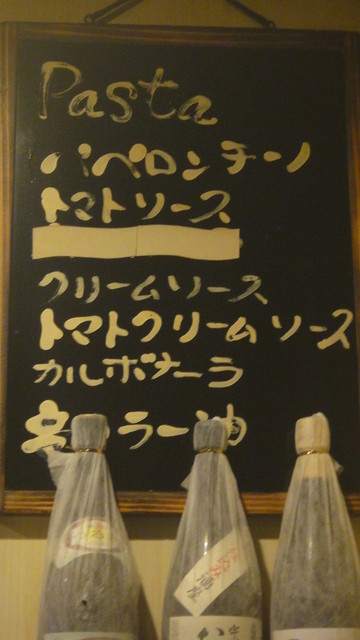 Pasta
パペロンチーノ
トマトソース
クリームソース
トマトクリームソース
カルボナーラ
ラー油